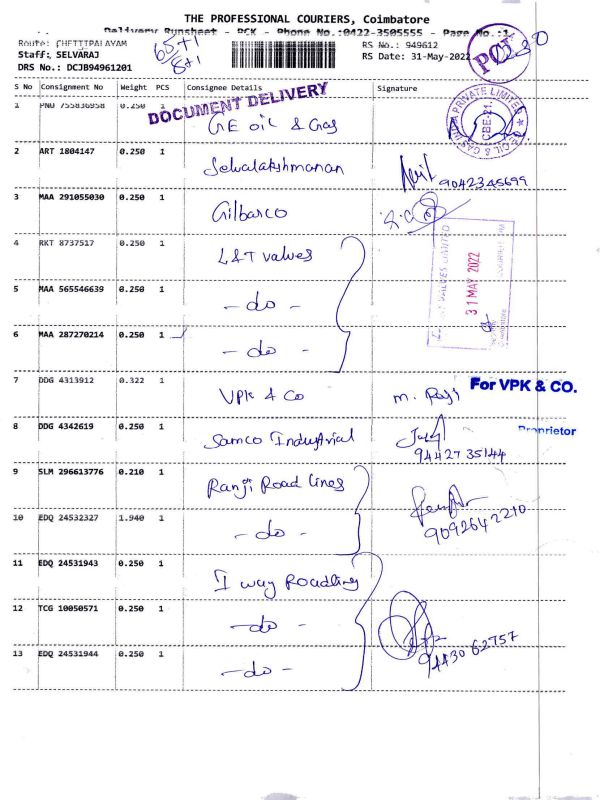 THE PROFESSIONAL COURIERS, Coimbatore
Delivery Runsheet - PCK - Phone No.:0422-3505555 - Page No.:1
Route: CHETTIPALAYAM
65+1
8+1
RS No.: 949612
Staff: SELVARAJ
RS Date: 31-May-2022
DRS No.: DCJB94961201
PCK
S No Consignment No Weight PCS Consignee Details Signature
DOCUMENT DELIVERY
1 PNU 755836958 0.250 1 GE oil & Gas
PRIVATE LIMITED
CBE-21.
2 ART 1804147 0.250 1 Selvalakshmanan 9042345699
3 MAA 291055030 0.250 1 Gilbarco
4 RKT 8737517 0.250 1 L&T valves
VALVES LIMITED
31 MAY 2022
5 MAA 565546639 0.250 1 - do -
6 MAA 287270214 0.250 1 - do -
7 DDG 4313912 0.322 1 VPK & Co M. Raji
For VPK & CO.
Proprietor
8 DDG 4342619 0.250 1 Samco Industrial
9442735144
9 SLM 296613776 0.210 1 Ranjit Road Lines
10 EDQ 24532327 1.940 1 - do - 9092642210
11 EDQ 24531943 0.250 1 I way Roadlines
12 TCG 10050571 0.250 1 - do -
13 EDQ 24531944 0.250 1 - do - 9443062757